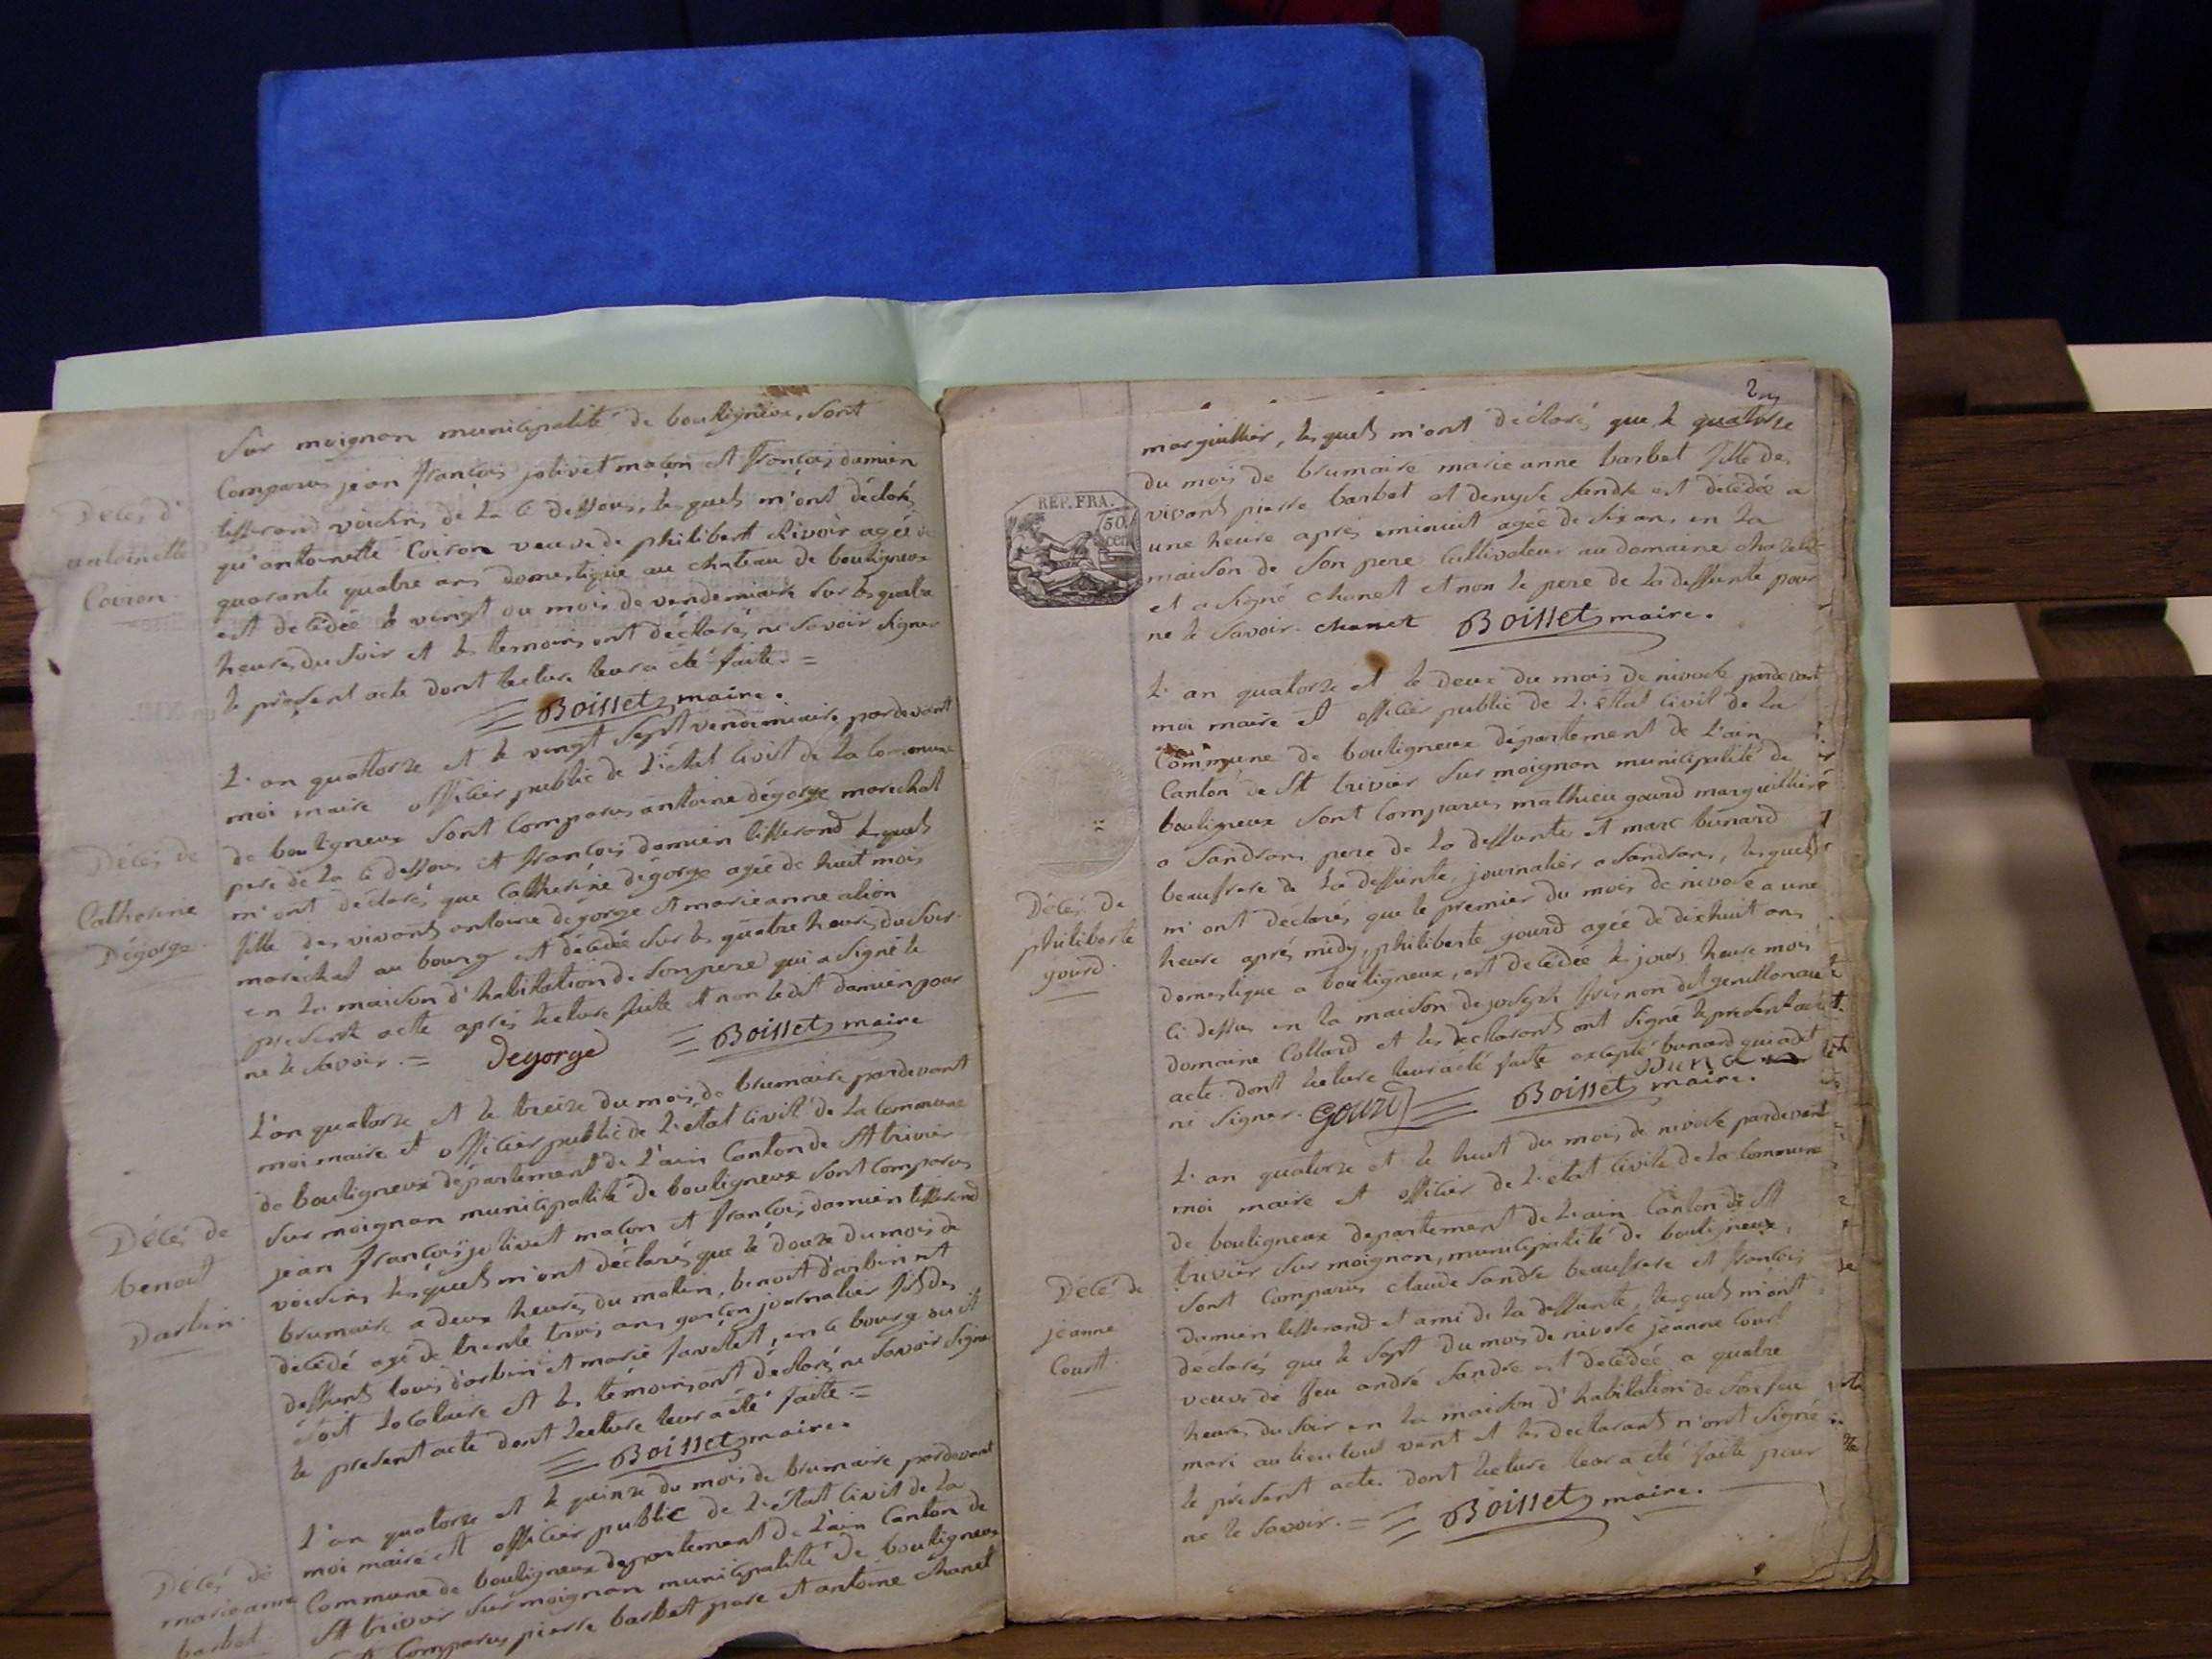 Sur moignon municipalité de bouligneux, sont
Comparus jean françois jolivet maçon et françois damien
tisserand voisins de la ci dessous, lesquels m'ont déclarés
qu'antoinette Coiron veuve de philibert Rivoir agée de
quarante quatre ans domestique au chateau de bouligneux
est décédée le vingt du mois de vendemiaire sur les quatre
heures du soir et les temoins ont déclarés ne savoir signer
le présent acte dont lecture leur a été faite. =
Boisset maire.
Décès d'
antoinette
Coiron.
L'an quatorze et le vingt sept vendemiaire pardevant
moi maire officier public de l'état civil de la Commune
de bouligneux sont Comparus antoine dégorge marechal
pere de la ci dessous et françois damien tisserand lesquels
m'ont déclarés que Catherine dégorge agée de huit mois
fille des vivants antoine dégorge et marieanne alion
maréchal au bourg est décédée sur les quatre heures du soir
en la maison d'habitation de son pere qui a signé le
present acte après lecture faite et non ledit damien pour
ne le savoir. = Degorge Boisset maire
Décès de
Catherine
Dégorge.
L'an quatorze et le treize du mois de brumaire pardevant
moi maire et officier public de l'état civil de la Commune
de bouligneux département de l'ain Canton de St trivier
sur moignan municipalité de bouligneux sont Comparus
jean françois jolivet maçon et françois damien tisserand
voisins lesquels m'ont déclarés que le douze du mois de
brumaire a deux heures du matin, benoit d'arbin est
décédé agé de trente trois ans garçon journalier fils des
deffunts louis d'arbin et marie, en ce bourg ou il
étoit locataire et les témoins ont déclarés ne savoir signer
le present acte dont lecture leur a été faite =
Boisset maire.
Décès de
benoit
Darbin.
L'an quatorze et le quinze du mois de brumaire pardevant
moi maire et officier public de l'état civil de la
Commune de bouligneux departement de l'ain Canton de
St trivier sur moignan municipalité de bouligneux
Comparus pierre barbet pere et antoine Chanel
Décès de
marieanne
barbet
marguillier, lesquels m'ont déclarés que le quatorze
du mois de brumaire marie anne barbet fille des
vivants pierre barbet et denyse sandre est décédée a
une heure après minuit agée de six ans en la
maison de son pere Cultivateur au domaine
et a signé chanel et non le pere de la deffunte pour
ne le savoir. chanel Boisset maire.
REP. FRA.
50
cen
L'an quatorze et le deux du mois de nivose pardevant
moi maire et officier public de l'état civil de la
Commune de bouligneux département de l'ain
Canton de St trivier sur moignan municipalité de
bouligneux sont Comparus mathieu gourd marguillier
a Sandrans pere de la deffunte et marc bunard
beaufrere de la deffunte, journalier a Sandrans, lesquels
m'ont déclarés que le premier du mois de nivose a une
heure après midy, philiberte gourd agée de dixhuit ans
domestique a bouligneux, est décédée les jours, heure mois
ci dessus en la maison de joseph
domaine Collard et les declarants ont signé le present acte
acte dont lecture leur a été faite excepté bunard qui
ni signer. Gourd Boisset maire.
Décès de
philiberte
gourd.
L'an quatorze et le huit du mois de nivose pardevant
moi maire et officier de l'état civile de la Commune
de bouligneux departement de l'ain Canton de St
trivier sur moignan, municipalité de bouligneux,
sont Comparus claude sandre beaufrere et françois
damien tisserand et ami de la deffunte, lesquels m'ont
déclarés que le sept du mois de nivose jeanne Court
veuve de feu andré sandre est décédée a quatre
heures du soir en la maison d'habitation de son feu
mari au lieu tout vent et les declarants n'ont signé
le présent acte dont lecture leur a été faite pour
ne le savoir. = Boisset maire.
Décès de
jeanne
Court.